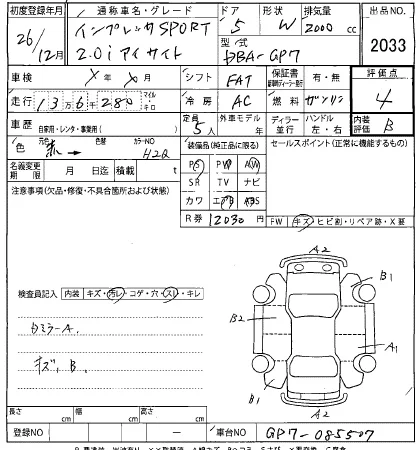 初度登録年月 通称車名・グレード ドア 形状 排気量 出品NO.
26/12月 インプレッサSPORT 5 W 2000 cc 2033
2.0i アイサイト 型式 DBA-GP7
車検 年 月 シフト FAT 保証書 有・無 評価点
走行 13万6千280 マイル・キロ 冷房 AC 燃料 ガソリン 4
車歴 自家用・レンタ・事業用( ) 定員 5人 外車モデル 年 ディーラー・並行 ハンドル 左・右 内装評価 B
色 元色 赤→ 色替 カラーNO H2Q 装備品(純正品に限る) セールスポイント(正常に機能するもの)
名義変更期限 月 日迄 積載 t PS PW AW
注意事項(欠品・修復・不具合箇所および状態) SR TV ナビ
カワ エアB ABS
R券 12030 円 FW キズ・ヒビ割・リペア跡・X要
A2
B1
検査員記入 内装 キズ・汚レ・コゲ・穴・スレ・キレ
B2
カミラーA.
A1
キズ.B.
B1
A2
長さ cm 幅 cm 高さ cm
登録NO － 車台NO GP7-085507